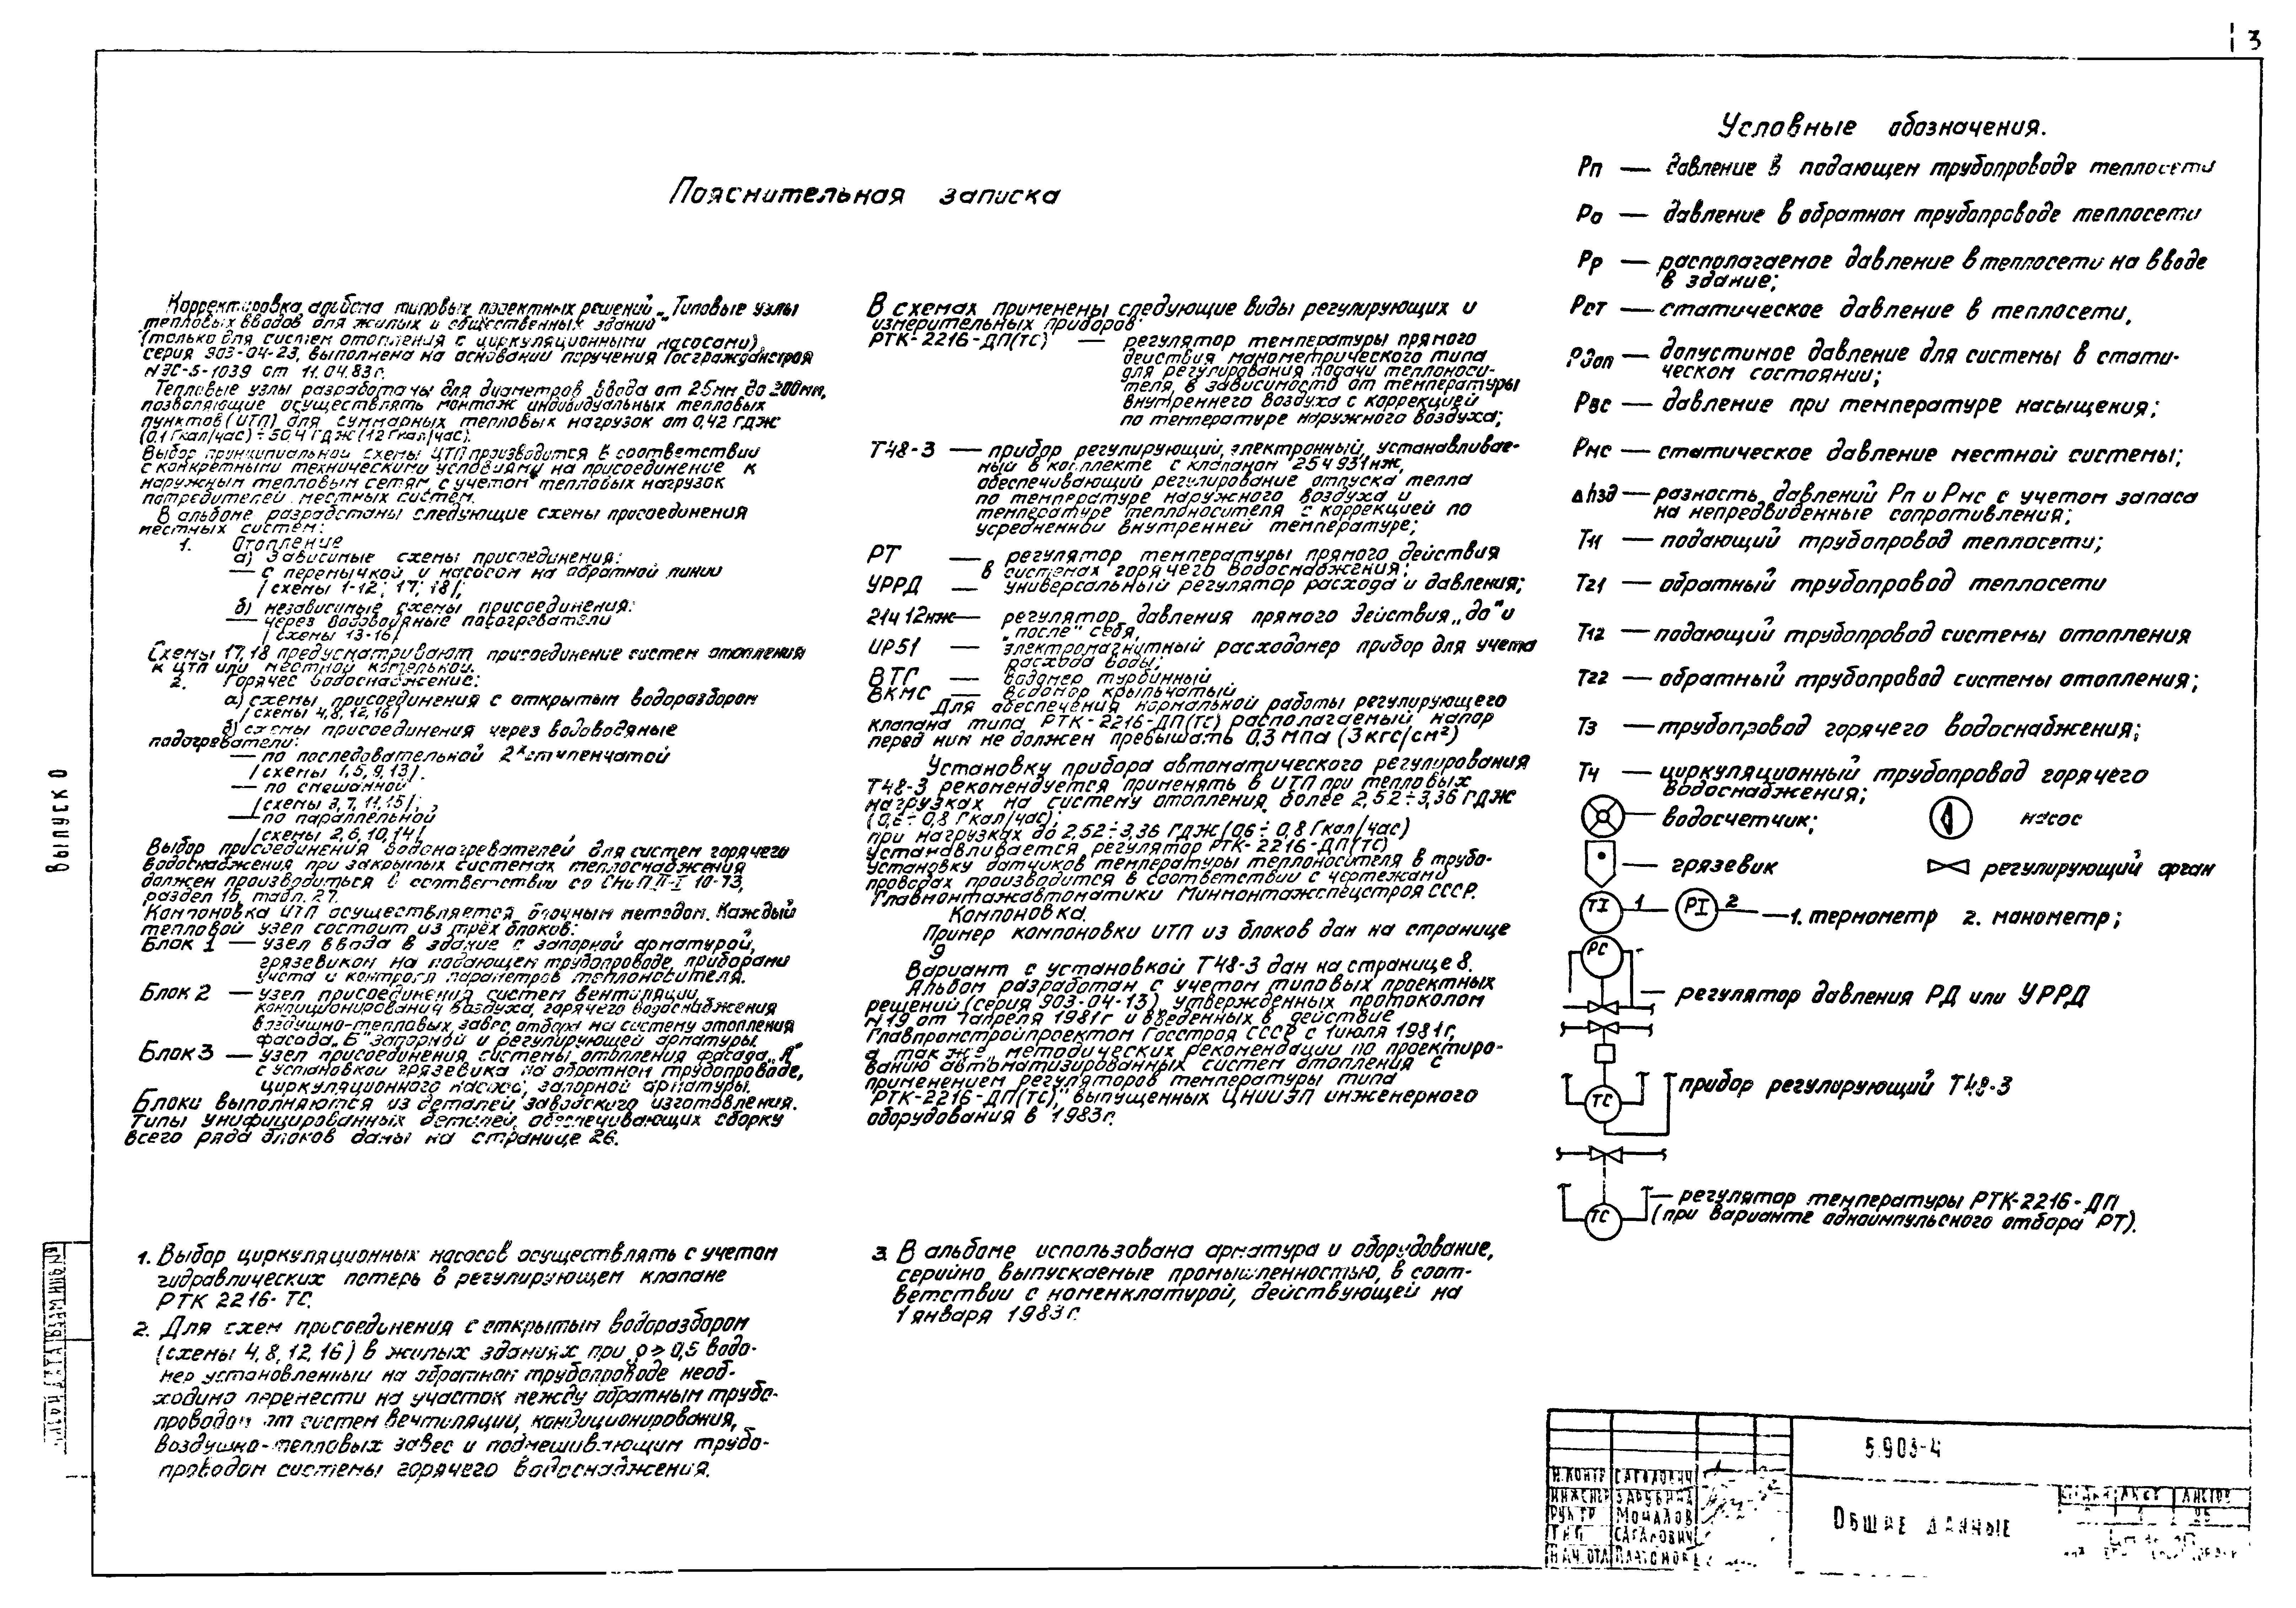 3
Пояснительная записка
Корректировка альбома типовых проектных решений „Типовые узлы
тепловых вводов для жилых и общественных зданий"
(только для систем отопления с циркуляционными насосами)
серия 903-04-23, выполнена на основании поручения Госгражданстроя
N ЭС-5-1039 от 11.04.83г.
Тепловые узлы разработаны для диаметров ввода от 25мм до 200мм,
позволяющие осуществлять монтаж индивидуальных тепловых
пунктов (ИТП) для суммарных тепловых нагрузок от 0,42 ГДЖ
(0,1 Гкал/час) ÷ 50,4 ГДЖ (12 Гкал/час).
Выбор принципиальной схемы ЦТП производится в соответствии
с конкретными техническими условиями на присоединение к
наружным тепловым сетям, с учетом тепловых нагрузок
потребителей местных систем.
В альбоме разработаны следующие схемы присоединения
местных систем:
1. Отопление
а) Зависимые схемы присоединения:
— с перемычкой и насосом на обратной линии
/схемы 1-12; 17, 18/;
б) независимые схемы присоединения:
— через водоводяные подогреватели
/схемы 13-16/
Схемы 17, 18 предусматривают присоединение систем отопления
к ЦТП или местной котельной.
2. Горячее водоснабжение:
а) схемы присоединения с открытым водоразбором
/схемы 4, 8, 12, 16/
б) схемы присоединения через водоводяные
подогреватели:
— по последовательной 2х ступенчатой
/схемы 1, 5, 9, 13/.
— по смешанной
/схемы 3, 7, 11, 15/;
— по параллельной
/схемы 2, 6, 10, 14/
Выбор присоединения водонагревателей для систем горячего
водоснабжения при закрытых системах теплоснабжения
должен производиться в соответствии со СНиП II-Г 10-73,
раздел 15, табл. 27.
Компоновка ИТП осуществляется блочным методом. Каждый
тепловой узел состоит из трёх блоков:
Блок 1 — узел ввода в здание с запорной арматурой,
грязевиком на подающем трубопроводе, приборами
учета и контроля параметров теплоносителя.
Блок 2 — узел присоединения систем вентиляции,
кондиционирования воздуха, горячего водоснабжения
воздушно-тепловых завес, отбора на систему отопления
фасада „Б" запорной и регулирующей арматуры.
Блок 3 — узел присоединения системы отопления фасада „А"
с установкой грязевика на обратном трубопроводе,
циркуляционного насоса, запорной арматуры.
Блоки выполняются из деталей заводского изготовления.
Типы унифицированных деталей, обеспечивающих сборку
всего ряда блоков даны на странице 26.
1. Выбор циркуляционных насосов осуществлять с учетом
гидравлических потерь в регулирующем клапане
РТК 2216-ТС.
2. Для схем присоединения с открытым водоразбором
(схемы 4, 8, 12, 16) в жилых зданиях при ρ ≥ 0,5 водо-
мер установленный на обратном трубопроводе необ-
ходимо перенести на участок между обратным трубо-
проводом от систем вентиляции, кондиционирования,
воздушно-тепловых завес и подмешивающим трубо-
проводом системы горячего водоснабжения.
В схемах применены следующие виды регулирующих и
измерительных приборов:
РТК-2216-ДП(ТС) — регулятор температуры прямого
действия манометрического типа
для регулирования подачи теплоноси-
теля, в зависимости от температуры
внутреннего воздуха с коррекцией
по температуре наружного воздуха;
Т48-3 — прибор регулирующий, электронный, устанавливае-
мый в комплекте с клапаном 254 931нж,
обеспечивающий регулирование отпуска тепла
по температуре наружного воздуха и
температуре теплоносителя с коррекцией по
усредненной внутренней температуре;
РТ — регулятор температуры прямого действия
в системах горячего водоснабжения;
УРРД — универсальный регулятор расхода и давления;
21ч 12нж — регулятор давления прямого действия „до" и
„после" себя,
ИР51 — электромагнитный расходомер прибор для учета
расхода воды;
ВТС — водомер турбинный
ВКМС — водомер крыльчатый
Для обеспечения нормальной работы регулирующего
клапана типа РТК-2216-ДП(ТС) располагаемый напор
перед ним не должен превышать 0,3 мпа (3 кгс/см²)
Установку прибора автоматического регулирования
Т48-3 рекомендуется применять в ИТП при тепловых
нагрузках на систему отопления более 2,52 ÷ 3,36 ГДЖ
(0,6 ÷ 0,8 Гкал/час);
при нагрузках до 2,52 ÷ 3,36 ГДЖ (0,6 ÷ 0,8 Гкал/час)
устанавливается регулятор РТК-2216-ДП(ТС)
Установку датчиков температуры теплоносителя в трубо-
проводах производится в соответствии с чертежами
Главмонтажавтоматики Минмонтажспецстроя СССР.
Компоновка.
Пример компоновки ИТП из блоков дан на странице
9
Вариант с установкой Т48-3 дан на странице 8.
Альбом разработан с учетом типовых проектных
решений (серия 903-04-13), утвержденных протоколом
N 19 от 7 апреля 1981г и введенных в действие
Главпромстройпроектом Госстроя СССР с 1 июля 1981г,
а также „ методических рекомендации по проектиро-
ванию автоматизированных систем отопления с
применением регуляторов температуры типа
РТК-2216-ДП(ТС)," выпущенных ЦНИИЭП инженерного
оборудования в 1983г.
3. В альбоме использована арматура и оборудование,
серийно выпускаемые промышленностью, в соот-
ветствии с номенклатурой, действующей на
1 января 1983г.
Условные обозначения.
Рп — давление в подающем трубопроводе теплосети
Ро — давление в обратном трубопроводе теплосети
Рр — располагаемое давление в теплосети на вводе
в здание;
Рст — статическое давление в теплосети,
Рдоп — допустимое давление для системы в стати-
ческом состоянии;
Рвс — давление при температуре насыщения;
Рмс — статическое давление местной системы;
Δhзд — разность давлений Рп и Рмс с учетом запаса
на непредвиденные сопротивления;
Т11 — подающий трубопровод теплосети;
Т21 — обратный трубопровод теплосети
Т12 — подающий трубопровод системы отопления
Т22 — обратный трубопровод системы отопления;
Т3 — трубопровод горячего водоснабжения;
Т4 — циркуляционный трубопровод горячего
водоснабжения;
— водосчетчик; насос
— грязевик регулирующий орган
TI 1 — PI 2 — 1. термометр 2. манометр;
РС
— регулятор давления РД или УРРД
ТС
прибор регулирующий Т48-3
ТС
— регулятор температуры РТК-2216-ДП
(при варианте одноимпульсного отбора РТ).
ВЫПУСК 0
5.903-4
Н.КОНТР САГАЛОВИЧ
ИНЖЕНЕР ЗАРУБИНА
РУК.ГР МОЧАЛОВ
ГИП САГАЛОВИЧ
НАЧ.ОТД
ОБЩИЕ ДАННЫЕ
СТАДИЯ ЛИСТ ЛИСТОВ